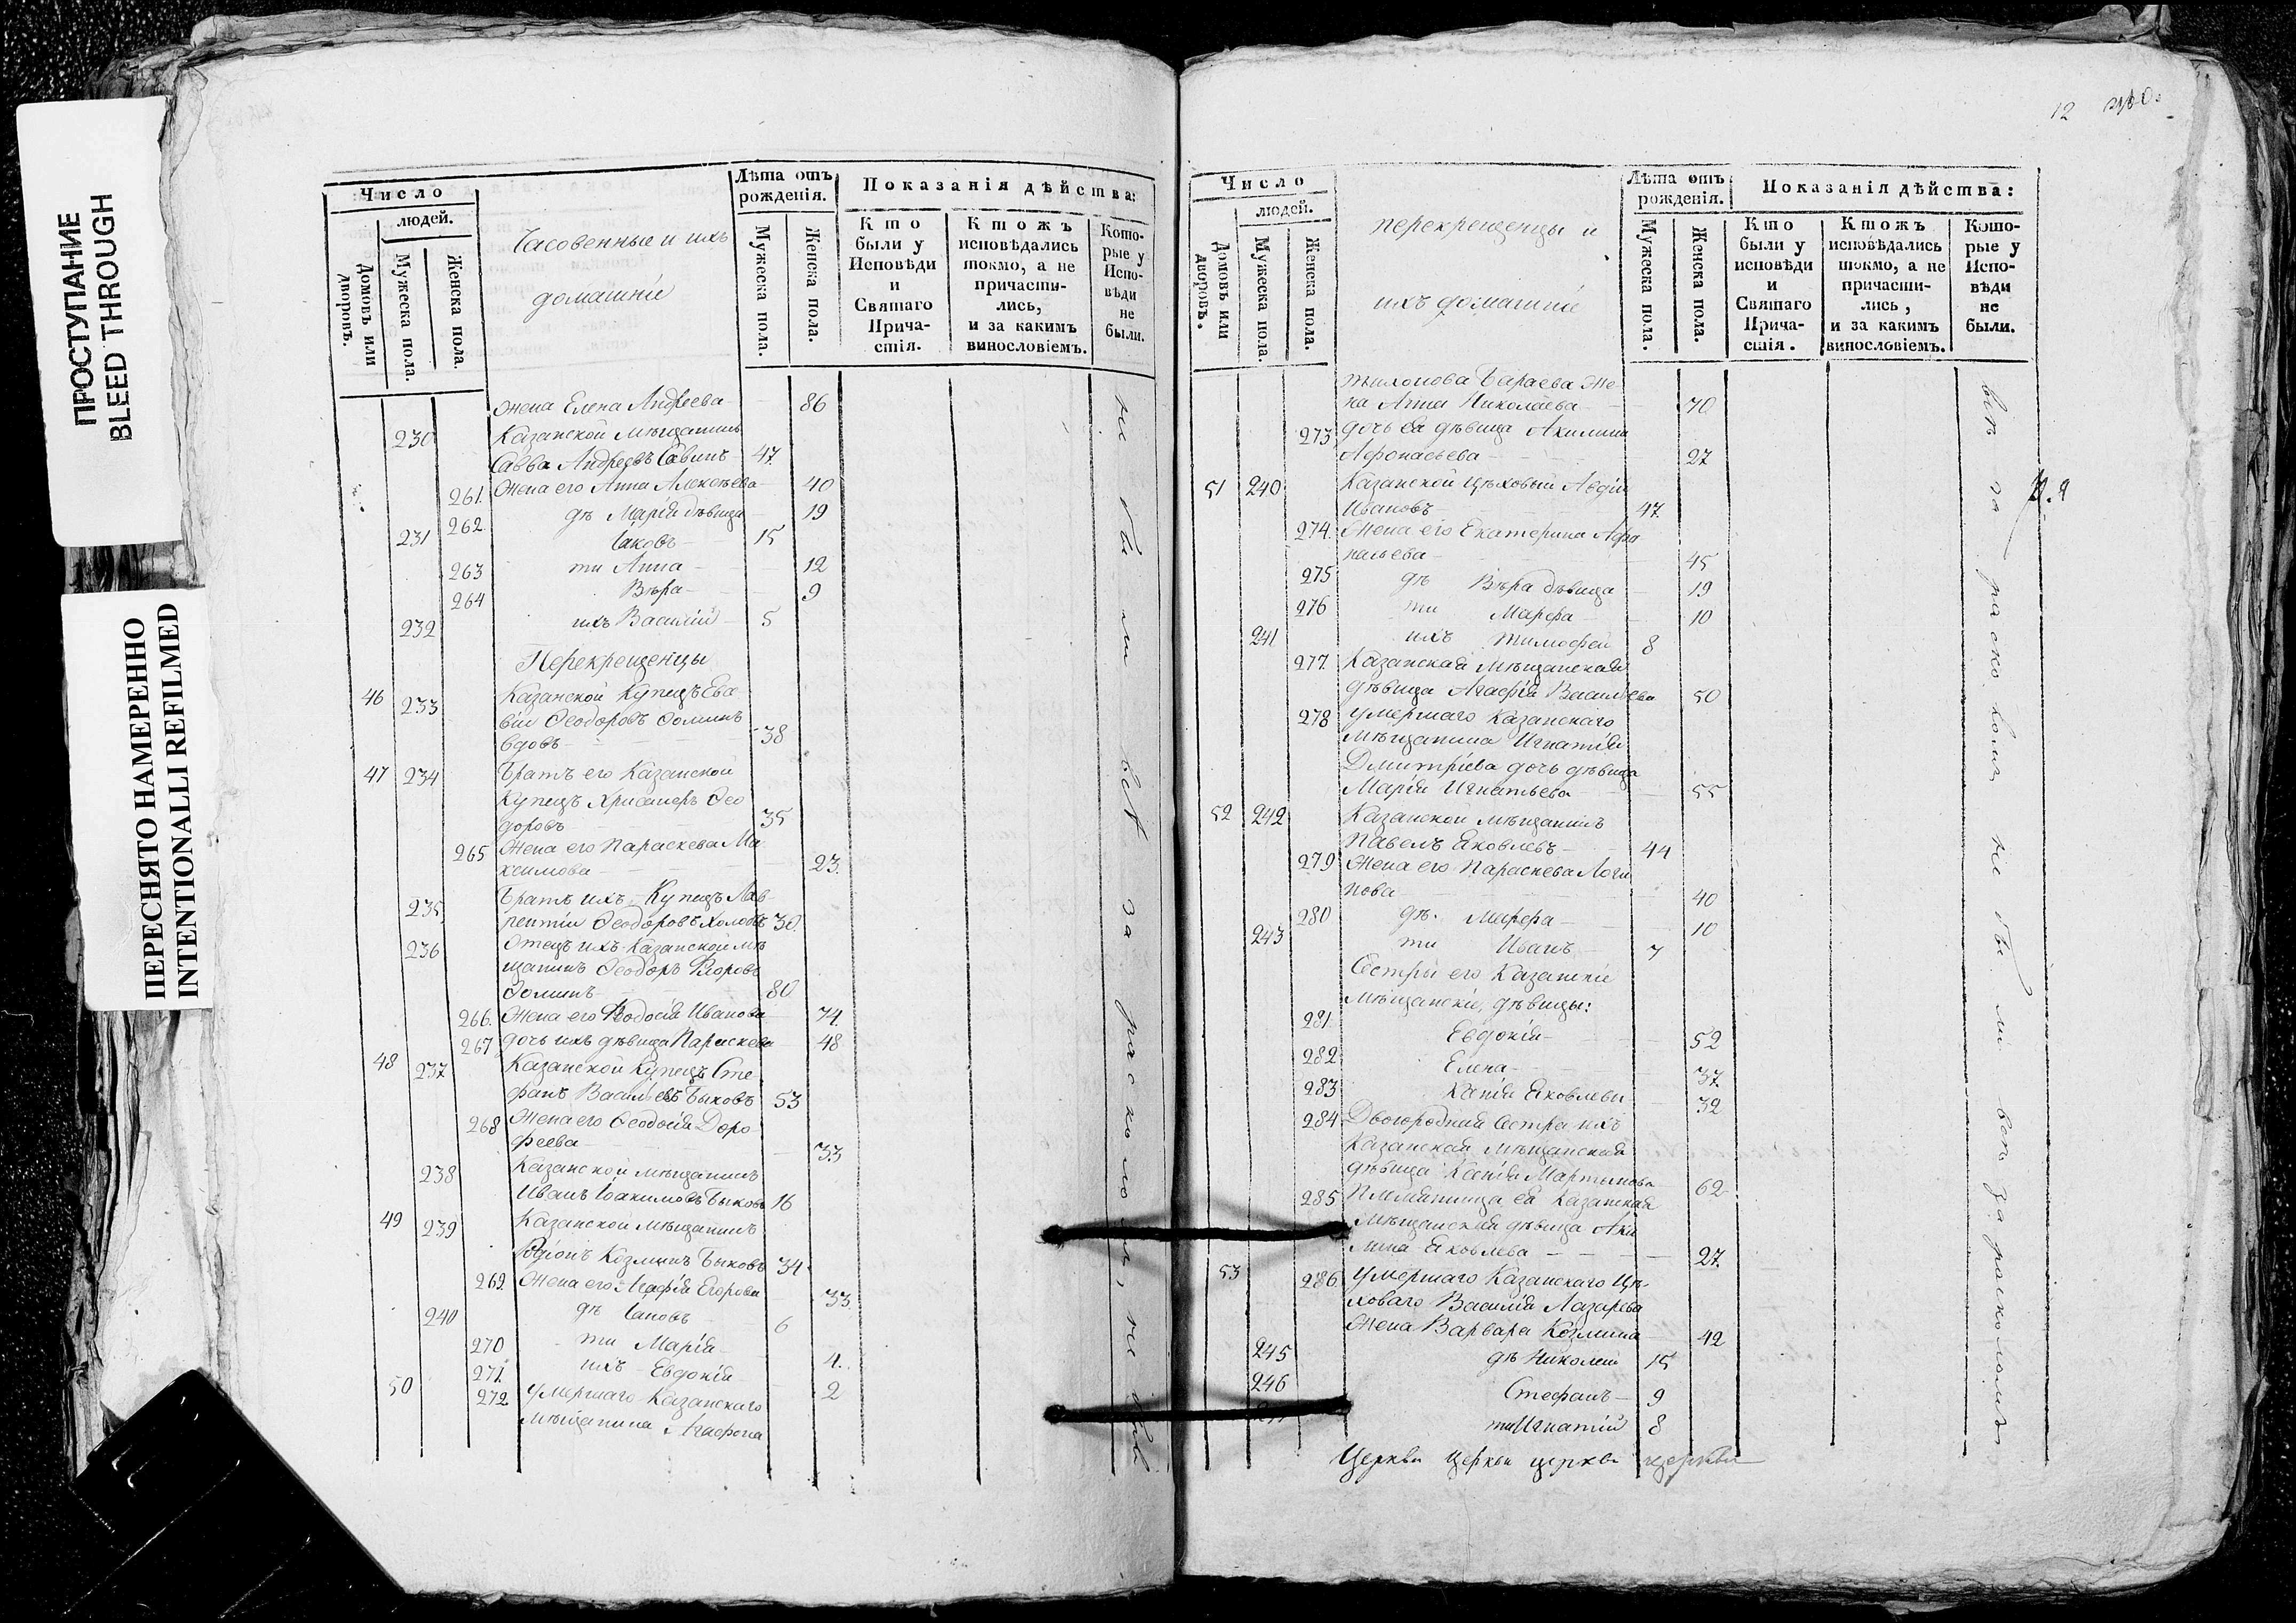 ПРОСТУПАНИЕ
BLEED THROUGH
ПЕРЕСНЯТО НАМЕРЕННО
INTENTIONALLI REFILMED
Число
людей.
Домовъ или дворовъ.
Мужеска пола.
Женска пола.
Часовенные и ихъ
домашніе
Лѣта отъ рожденія.
Мужеска пола.
Женска пола.
Показанія дѣйства:
Кто были у Исповѣди и Святаго Прича-стія.
Ктожъ исповѣдались токмо, а не причасти-лись, и за какимъ винословіемъ.
Кото-рые у Испо-вѣди не были.
жена Елена Андреева 86
230 Казанской мѣщанинъ
Савва Андреевъ Савинъ 47
261 Жена его Анна Алексѣева 40
262 дѣ Марія дѣвица 19
231 Іаковъ 15
263 ти Анна 12
264 Вѣра 9
232 ихъ Василій 5
Перекрещенцы
46 233 Казанской Купецъ Ева
Ѳеодоровъ Ѳоминъ
вдовъ 38
47 234 Братъ его Казанской
Купецъ Ѳео
доровъ 35
265 Жена его Параскева Ма
ксимова 23.
235 Братъ ихъ Купецъ Лав-
рентій Ѳеодоровъ 30
236 Отецъ ихъ Казанской мѣ
щанинъ Ѳеодоръ
Ѳоминъ 80
266. Жена его Ѳеодосія Иванова 74
267 дочь ихъ дѣвица Параскева 48
48 237 Казанской Купецъ Сте
фанъ Васильевъ Быковъ 53
268 Жена его Ѳеодосія Доро
феева 33
238 Казанской мѣщанинъ
Иванъ Іоакимовъ Быковъ 16
49 239 Казанской мѣщанинъ
Родіонъ Козминъ Быковъ 34
269. Жена его Агафія Егорова 33.
240 дѣ Іаковъ 6
270 ти Марія 4.
271. ихъ Евдокія 2
50 272 умершаго Казанскаго
мѣщанина Агафона
не бы ли всѣ за расколомъ, не были
12
Число
людей.
Домовъ или дворовъ.
Мужеска пола.
Женска пола.
перекрещенцы и
ихъ домашніе
Лѣта отъ рожденія.
Мужеска пола.
Женска пола.
Показанія дѣйства:
Кто были у исповѣди и Святаго Прича-стія.
Ктожъ исповѣдались токмо, а не причасти-лись, и за какимъ винословіемъ.
Кото-рые у Испо-вѣди не были.
Бараева же
на Анна Николаева 70
273 дочь ея дѣвица Акилина
Афонасьева 27
51 240 Казанской цѣховый Авдій
Ивановъ 47.
274. Жена его Екатерина Афа
насьева 45
275 дѣ Вѣра дѣвица 19
276 ти Марфа 10
241 ихъ Тимофей 8
277. Казанская мѣщанская
дѣвица Агафія Васильева 50
278 умершаго Казанскаго
мѣщанина Игнатія
Дмитріева дочь дѣвица
Марія Игнатьева 55
52 242 Казанской мѣщанинъ
Павелъ Яковлевъ 44
279 Жена его Параскева Логи
нова 40
280 дѣ. Марфа 10
243 ти Иванъ 7
Сестры его Казанскіе
мѣщанскіе, дѣвицы:
281. Евдокія 52
282. Елена 37.
283 Ксенія Яковлевы 32
284 Двоюродная Сестра ихъ
Казанская мѣщанская
дѣвица Ксенія Мартынова 62
285 Племянница ея Казанская
мѣщанская дѣвица Аки
лина Яковлева 27.
53 286 умершаго Казанскаго Цѣ-
ховаго Василія Лазарева
жена Варвара Козмина 42
245 дѣ Николай 15
246 Стефанъ 9
ти Игнатій 8
всѣ за расколомъ не бы ли всѣ за расколомъ
Церкви Церкви церкви церкви